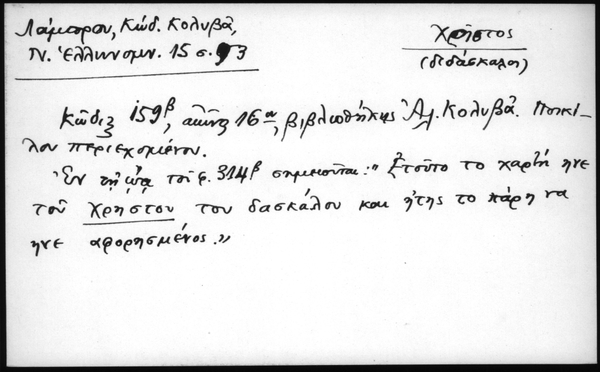 Λάμπρου, Κώδ. Κολυβᾶ,
Ν. Ἑλληνομν. 15 σ. 93
Χρῆστος
(διδάσκαλος)
Κῶδιξ 159β, αἰῶνος 16α, βιβλιοθήκης Ἀλ. Κολυβᾶ. Ποικί-
λου περιεχομένου.
Ἐν τῇ ᾤᾳ τοῦ φ. 314β σημειοῦται: "Ετοῦτο το χαρτὴ ηνε
τοῦ Χρήστου του δασκάλου και ήτης το πάρη να
ηνε αφορησμένος."